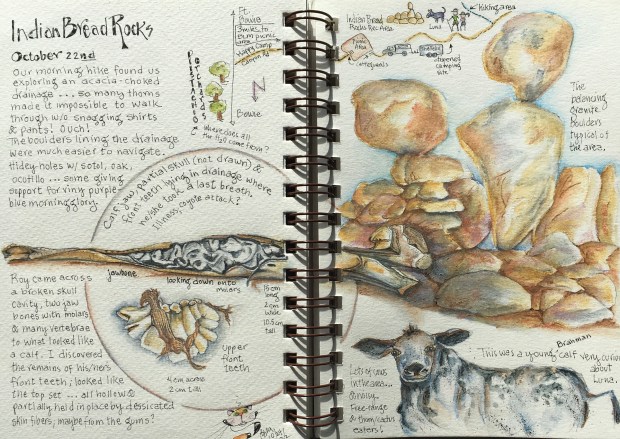 Indian Bread Rocks
October 22nd
Our morning hike found us
exploring an acacia-choked
drainage ... so many thorns
made it impossible to walk
through w/o snagging shirts
& pants! Ouch!
The boulders lining the drainage
were much easier to navigate.
Hidey-holes w/ sotol, oak,
ocotillo ... some giving
support for viny purple
blue morning glory.
Pistachio
Orchards
Ft.
Bowie
3 miles to
BLM picnic
area
Happy Camp
Canyon Rd
N
Bowie
where does all
the H2O come from?
Calf jaw, partial skull (not drawn) &
front teeth lying in drainage where
he/she took a last breath.
Illness, coyote attack?
jawbone
looking down onto
molars
18 cm
long
2 cm
wide
11.5 cm
tall
Roy came across
a broken skull
cavity, two jaw
bones with molars
& many vertebrae
to what looked like
a calf. I discovered
the remains of his/her
front teeth; looked like
the top set ... all hollow &
partially held in place by dessicated
skin fibers; maybe from the gums?
upper
front
teeth
4 cm across
2 cm tall
Indian Bread
Rocks Rec Area
Luna
Hiking area
Picnic
Area
cattle guards
dispersed
camping
site
The
balancing
granite
boulders
typical of
the area.
Brahman
This was a young calf very curious
about
Luna.
Lots of cows
in the area...
& noisy.
Free-range
& thorn/cactus
eaters!